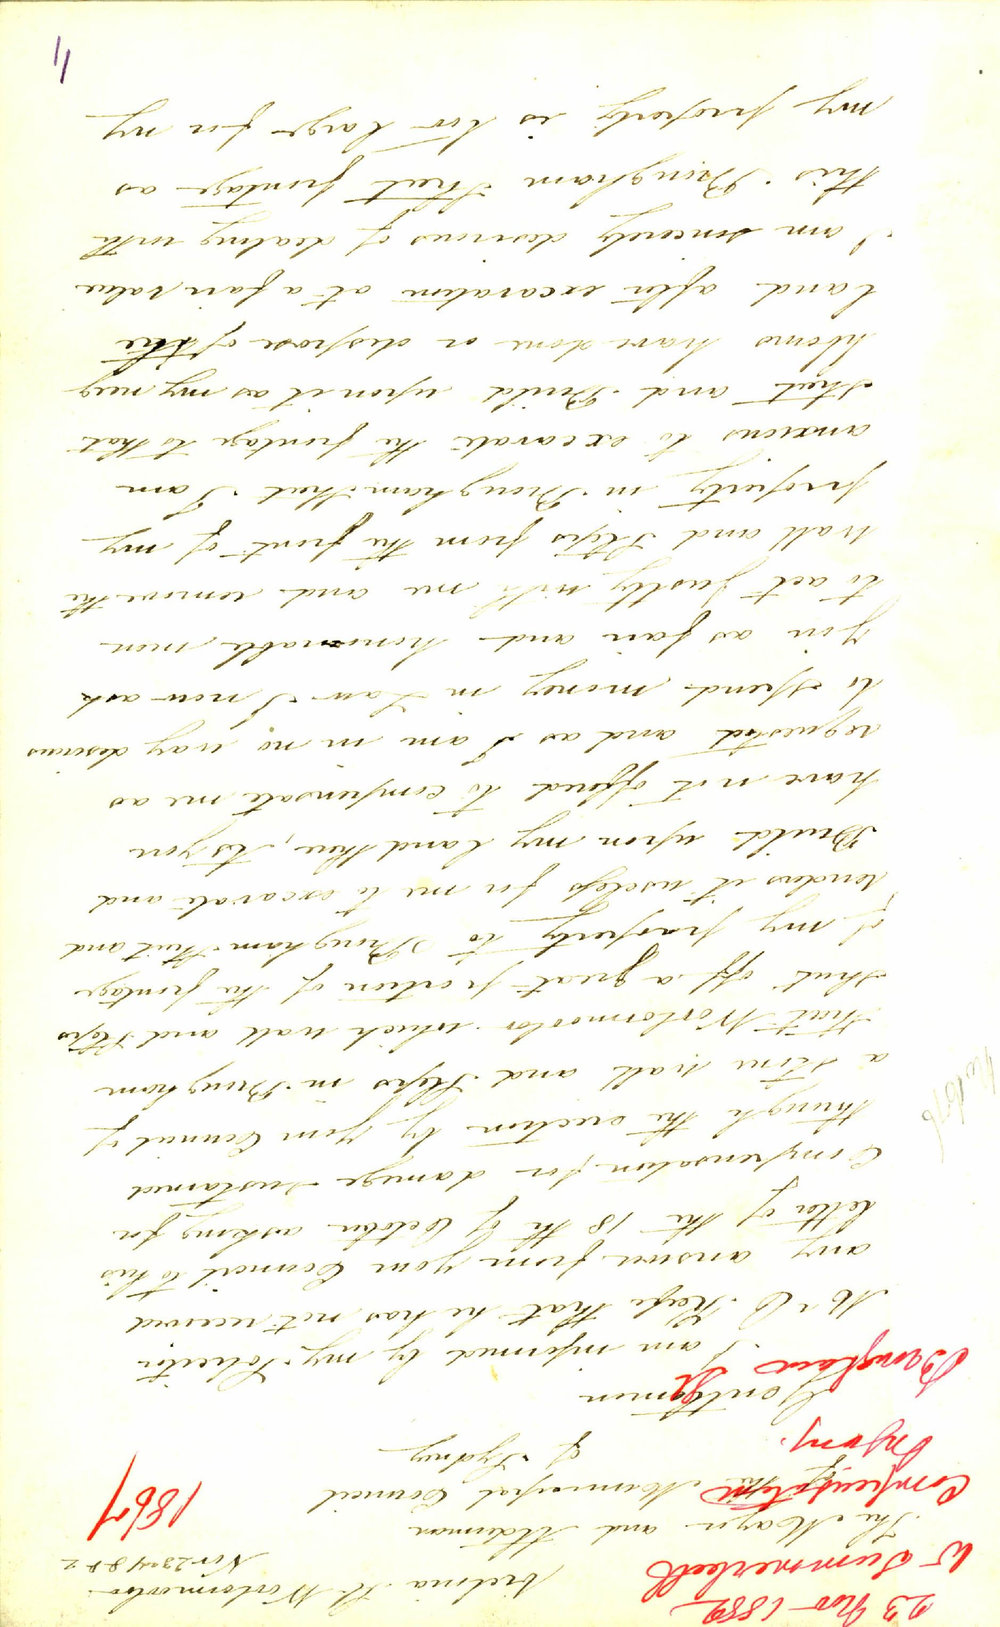 Victoria St Woloomooloo
Nov 23rd / 82
23 Nov 1882
W Summerbell
Compensation
Injury.
Brougham St
1867
The Mayor and Alderman
of the Municipal Council
of Sydney
Gentlemen
I am informed by my Solicitor
Mr O Keefe that he has not received
any answer from your Council to his
letter of the 18 th of October asking for
Compensation for damage sustained
through the erection by your Council of
a stone wall and Steps in Brougham
Street Woloomooloo which wall and Steps
Shut off a great portion of the frontage
of my property to Brougham Street and
renders it useless for me to excavate and
Build upon my land there, As you
have not offered to compensate me as
requested and as I am in no way desirous
to spend money in Law I now ask
you as fair and honourable men
to act justly with me and remove the
Wall and Steps from the front of my
property in Brougham Street I am
anxious to excavate the frontage to that
Street and Build upon it as my neig
hbours have done or dispose of the
land after excavation at a fair value
I am sincerely desirous of dealing with
this Brougham Street frontage as
my property is too large for my